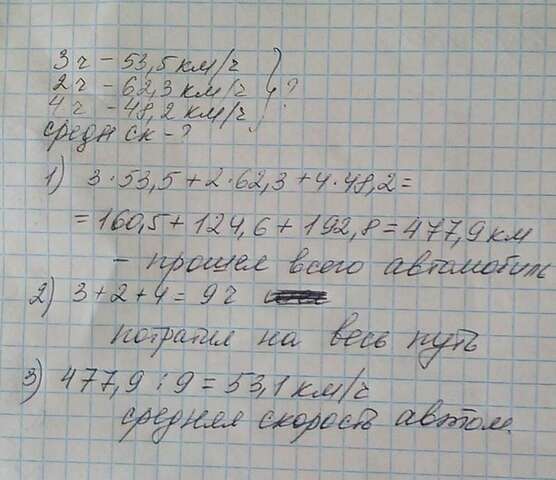 3ч - 53,5 км/ч
2ч - 62,3 км/ч ?
4ч - 48,2 км/ч
средн ск - ?
1) 3·53,5+2·62,3+4·48,2=
=160,5+124,6+192,8=477,9 км
- прошел всего автомобиль
2) 3+2+4=9ч
потратил на весь путь
3) 477,9:9=53,1 км/ч
средняя скорость автом.